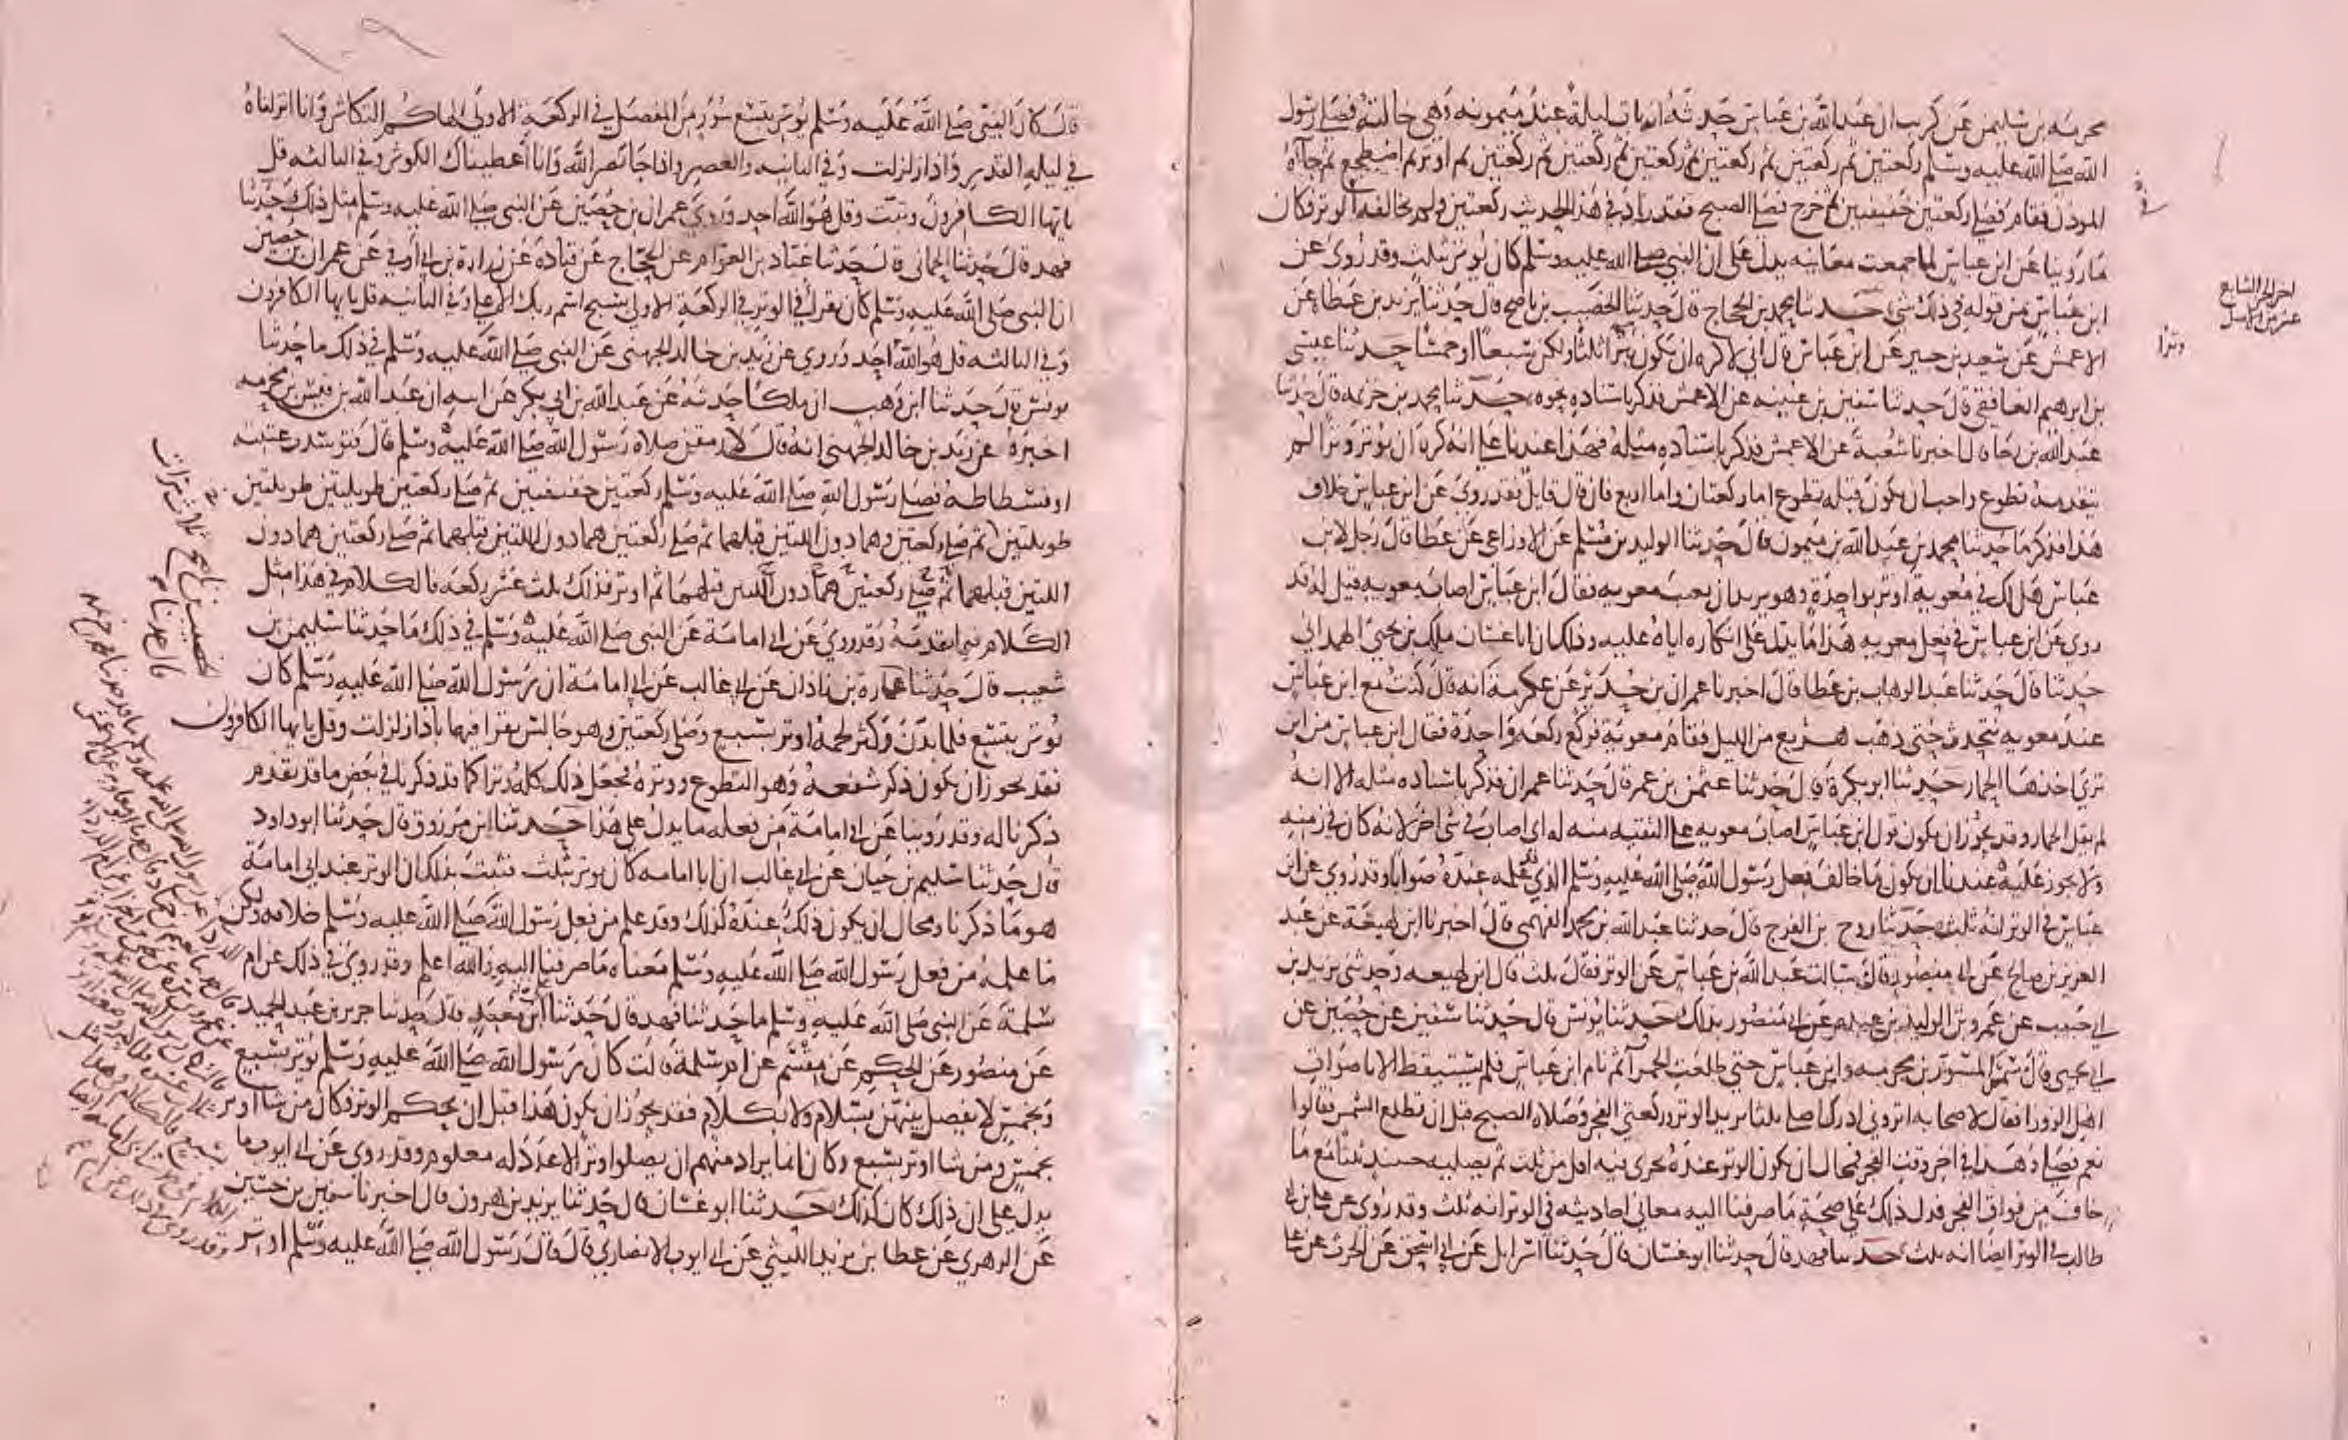 مخرمه بن سليمن عن كريب ان عبد الله بن عباس حدثه انه بات ليلة عند ميمونه وهي خالته فصلى رسول
الله صلى الله عليه وسلم ركعتين ثم ركعتين ثم ركعتين ثم ركعتين ثم ركعتين ثم ركعتين ثم اوتر ثم اضطجع ثم جاه
الموذن فقام فصلى ركعتين خفيفتين ثم خرج فصلى الصبح فقد زاد في هذا الحديث ركعتين ولم يخالفه في الوتر فكان
ما روينا عن ابن عباس لما جمعت معانيه يدل على ان النبي صلى الله عليه وسلم كان يوتر بثلث وقد روي عن
ابن عباس من قوله في ذلك شي حدثنا محمد بن الحجاج قال حدثنا الخصيب بن ناصح قال حدثنا يزيد بن عطا عن
الاعمش عن سعيد بن جبير عن ابن عباس قال اني لاكره ان يكون بترا ثلثا ولكن سبعا او خمسا حدثنا عيسى
بن ابرهيم الغافقي قال حدثنا سفين بن عيينه عن الاعمش فذكر باسناده نحوه حدثنا محمد بن خزيمه قال حدثنا
عبد الله بن رجا قال اخبرنا شعبة عن الاعمش فذكر باسناده مثله فهذا عندنا على انه كره ان يوتر وترا لم
يتقدمه تطوع واحب ان يكون قبله تطوع اما ركعتان واما اربع فان قال قايل فقد روي عن ابن عباس خلاف
هذا فذكر ما حدثنا محمد بن عبد الله بن ميمون قال حدثنا الوليد بن مسلم عن الاوزاعي عن عطا قال قال رجل لابن
عباس هل لك في معوية اوتر بواحدة وهو يريد ان يعيب معويه فقال ابن عباس اصاب معويه قيل له قد
روي عن ابن عباس في فعل معويه هذا ما يدل على انكاره اياه عليه وذلك ان ابا غسان ملك بن يحيى الهمداني
حدثنا قال حدثنا عبد الوهاب بن عطا قال اخبرنا عمران بن حدير عن عكرمة انه قال كنت مع ابن عباس
عند معويه نتحدث حتى ذهب هزيع من الليل فقام معوية فركع ركعه واحدة فقال ابن عباس من اين
ترى اخذها الحمار حدثنا ابو بكرة قال حدثنا عثمن بن عمر قال حدثنا عمران فذكر باسناده مثله الا انه
لم يقل الحمار وقد يجوز ان يكون قول ابن عباس اصاب معويه على التقيه منه له اي اصاب في شي اخر لانه كان في زمنه
ولا يجوز عليه عندنا ان يكون ما خالف فعل رسول الله صلى الله عليه وسلم الذي قد علمه عنده صوابا وقد روي عن ابن
عباس في الوتر انه ثلث حدثنا روح بن الفرج قال حدثنا عبد الله بن محمد الفهمي قال اخبرنا ابن لهيعة عن عبد
العزيز بن صالح عن ابي منصور قال سالت عبد الله بن عباس عن الوتر فقال ثلث قال ابن لهيعه وحدثني يزيد بن
ابي حبيب عن عمرو بن الوليد بن عبده عن ابي منصور بذلك حدثنا يونس قال حدثنا سفين عن حصين عن
ابي يحيى قال سمر المسور بن مخرمه وابن عباس حتى طلعت الحمرا ثم نام ابن عباس فلم يستيقظ الا باصوات
اهل الزورا فقال لاصحابه اتروني ادرك اصلي ثلثا يريد الوتر وركعتي الفجر وصلاه الصبح قبل ان تطلع الشمس فقالوا
نعم فصلى وهذا في اخر وقت الفجر فمحال ان يكون الوتر عنده يجزي فيه اقل من ثلث ثم يصليه حينيذ ثلثا مع ما
خاف من فوات الفجر فدل ذلك على صحة ما صرفنا اليه معاني احاديثه في الوتر انه ثلث وقد روي عن علي بن ابي
طالب في الوتر ايضا انه ثلث حدثنا فهد قال حدثنا ابو غسان قال حدثنا اسرايل عن ابي اسحق عن الحرث عن علي
وترا
قال كان النبي صلى الله عليه وسلم يوتر بتسع سور من المفصل في الركعة الاولى الهاكم التكاثر وانا انزلناه
في ليله القدر واذا زلزلت وفي الثانيه والعصر واذا جا نصر الله وانا اعطيناك الكوثر وفي الثالثه قل
يايها الكافرون وتبت وقل هو الله احد وروي عمران بن حصين عن النبي صلى الله عليه وسلم مثل ذلك حدثنا
فهد قال حدثنا الحماني قال حدثنا عباد بن العوام عن الحجاج عن قتادة عن زرارة بن ابي اوفى عن عمران بن حصين
ان النبي صلى الله عليه وسلم كان يقرا في الوتر في الركعة الاولى بسبح اسم ربك الاعلى وفي الثانيه قل يايها الكافرون
وفي الثالثه قل هو الله احد وروي عن زيد بن خالد الجهني عن النبي صلى الله عليه وسلم في ذلك ما حدثنا
يونس قال حدثنا ابن وهب ان ملكا حدثه عن عبد الله بن ابي بكر عن ابيه ان عبد الله بن قيس بن مخرمه
اخبره عن زيد بن خالد الجهني انه قال لارمقن صلاه رسول الله صلى الله عليه وسلم قال فتوسدت عتبته
او فسطاطه فصلى رسول الله صلى الله عليه وسلم ركعتين خفيفتين ثم صلى ركعتين طويلتين طويلتين
طويلتين ثم صلى ركعتين وهما دون اللتين قبلهما ثم صلى ركعتين هما دون اللتين قبلهما ثم صلى ركعتين هما دون
اللتين قبلهما ثم صلى ركعتين هما دون اللتين قبلهما ثم اوتر فذلك ثلث عشر ركعه فالكلام في هذا مثل
الكلام فيما تقدمه وقد روي عن ابي امامة عن النبي صلى الله عليه وسلم في ذلك ما حدثنا سليمن بن
شعيب قال حدثنا عمارة بن زاذان عن ابي غالب عن ابي امامة ان رسول الله صلى الله عليه وسلم كان
يوتر بتسع فلما بدن وكثر لحمه اوتر بسبع وصلى ركعتين وهو جالس يقرا فيهما باذا زلزلت وقل يايها الكافرون
فقد يجوز ان يكون ذكر شفعه وهو التطوع ووتره فجعل ذلك كله وترا كما قد ذكرنا في بعض ما قد تقدم
ذكرنا له وقد روينا عن ابي امامة من فعله ما يدل على هذا حدثنا ابن مرزوق قال حدثنا ابو داود
قال حدثنا سليم بن حيان عن ابي غالب ان ابا امامه كان يوتر بثلث فثبت بذلك ان الوتر عند ابي امامة
هو ما ذكرنا ومحال ان يكون ذلك عنده كذلك وقد علم من فعل رسول الله صلى الله عليه وسلم خلافه ولكن
ما علمه من فعل رسول الله صلى الله عليه وسلم معناه ما صرفنا اليه والله اعلم وقد روي في ذلك عن ام
سلمة عن النبي صلى الله عليه وسلم ما حدثنا فهد قال حدثنا ابن معبد قال حدثنا جرير بن عبد الحميد
عن منصور عن الحكم عن مقسم عن ام سلمة قالت كان رسول الله صلى الله عليه وسلم يوتر بسبع
وبخمس لا يفصل بينهن بسلام ولا بكلام فقد يجوز ان يكون هذا قبل ان يحكم الوتر فكان من شا اوتر
بخمس ومن شا اوتر بسبع وكان انما يراد منهم ان يصلوا وترا لا عدد له معلوم وقد روي عن ابي ايوب ما
يدل على ان ذلك كان كذلك حدثنا ابو غسان قال حدثنا يزيد بن هرون قال اخبرنا سفين بن حسين
عن الزهري عن عطا بن يزيد الليثي عن ابي ايوب الانصاري قال قال رسول الله صلى الله عليه وسلم اوتر